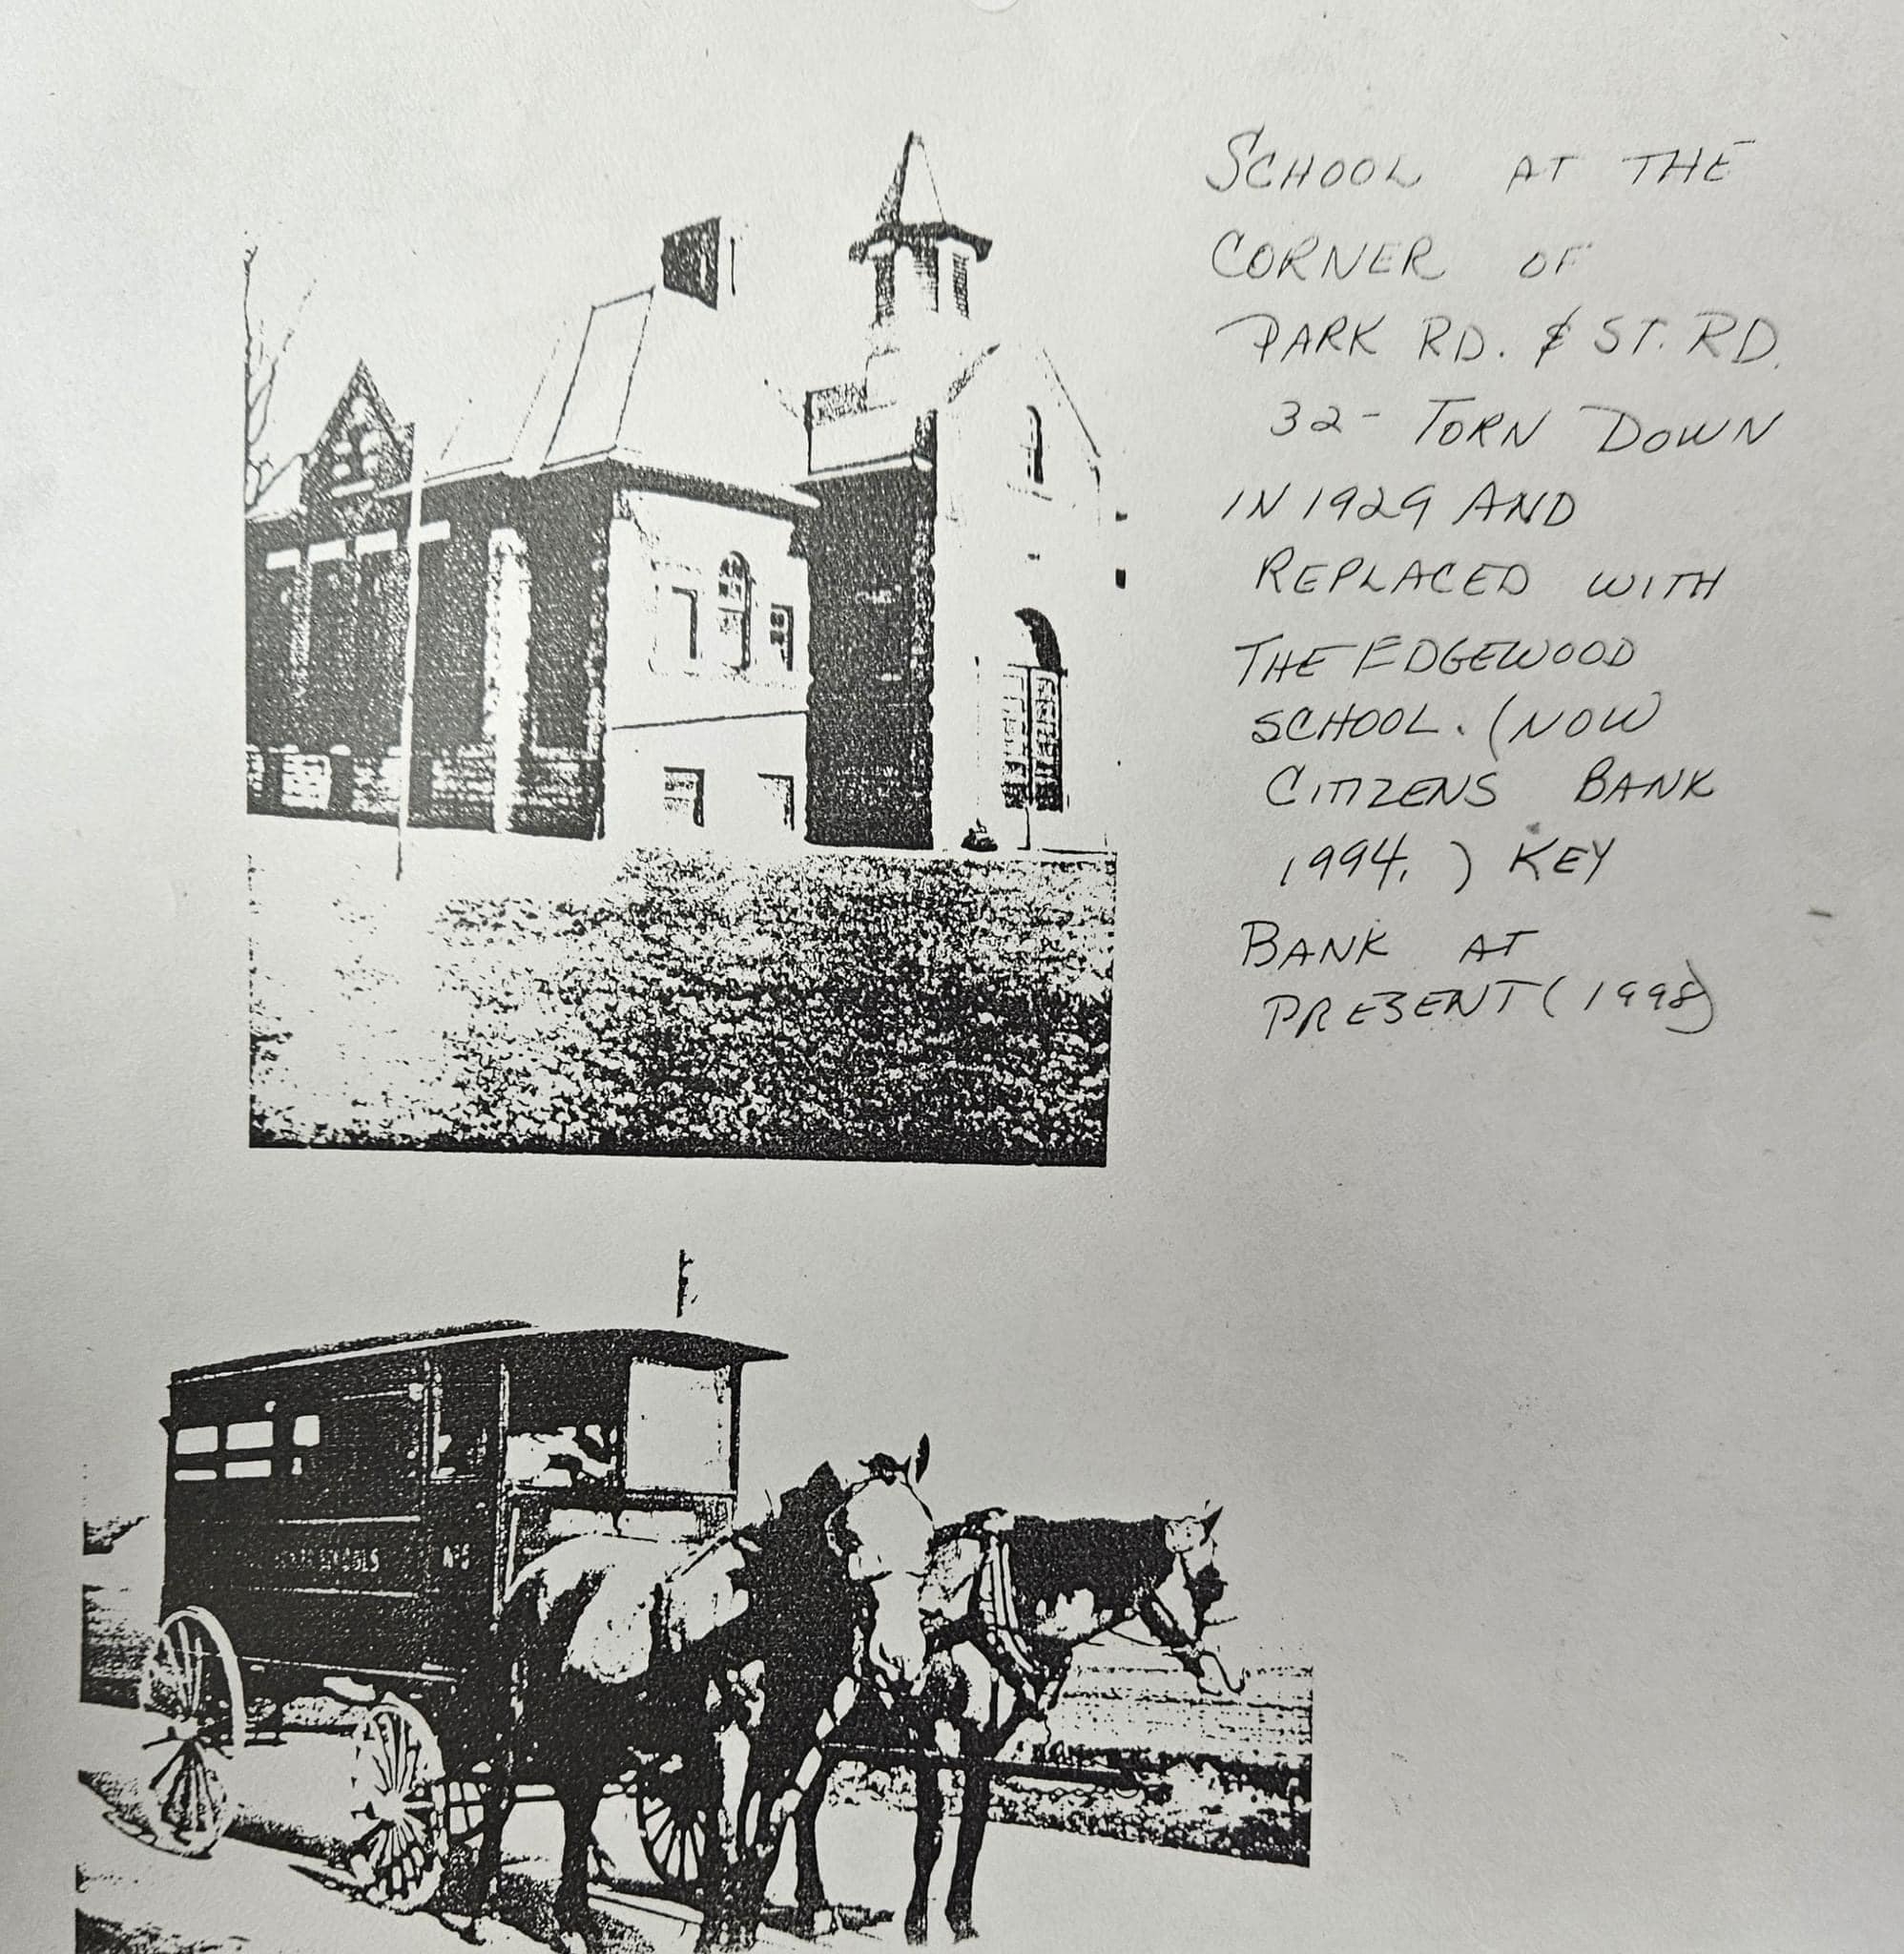 SCHOOL AT THE
CORNER OF
PARK RD. & ST. RD.
32- TORN DOWN
IN 1929 AND
REPLACED WITH
THE EDGEWOOD
SCHOOL. (NOW
CITIZENS BANK
1994.) KEY
BANK AT
PRESENT (1998)